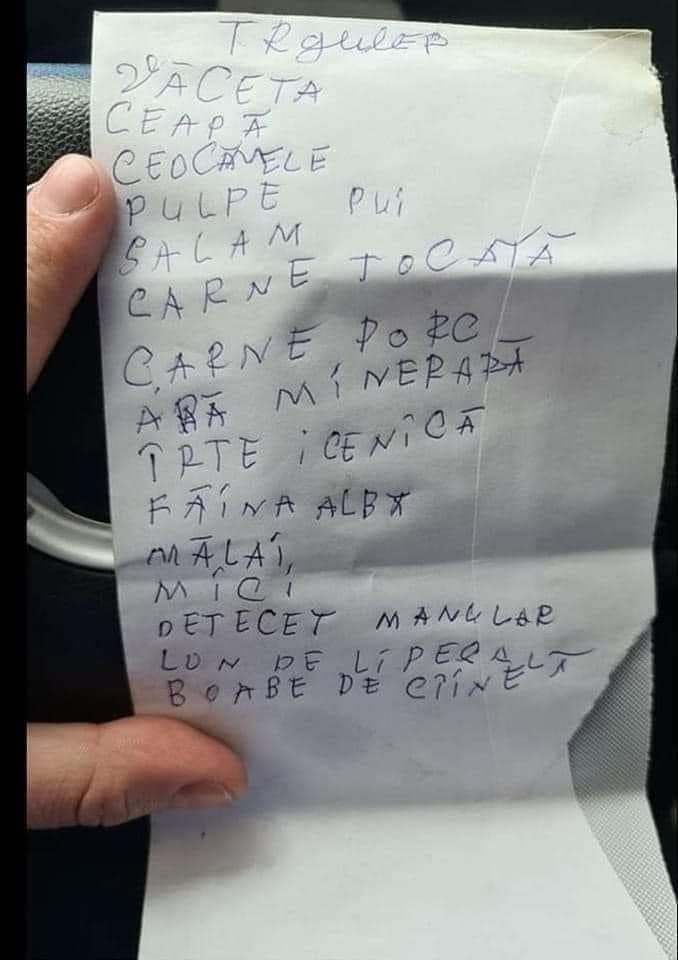 VĂCETA
CEAPĂ
CEOCĂNELE
PULPE PUI
SALAM
CARNE TOCATĂ
CARNE PORC
APĂ MINERARĂ
ÎRTE ICENÎCĂ
FĂÎNA ALBĂ
MĂLAÎ
MÎCI
DETECET MANCLAR
LON DE LÎPEQALĂ
BOABE DE CÎÎNE